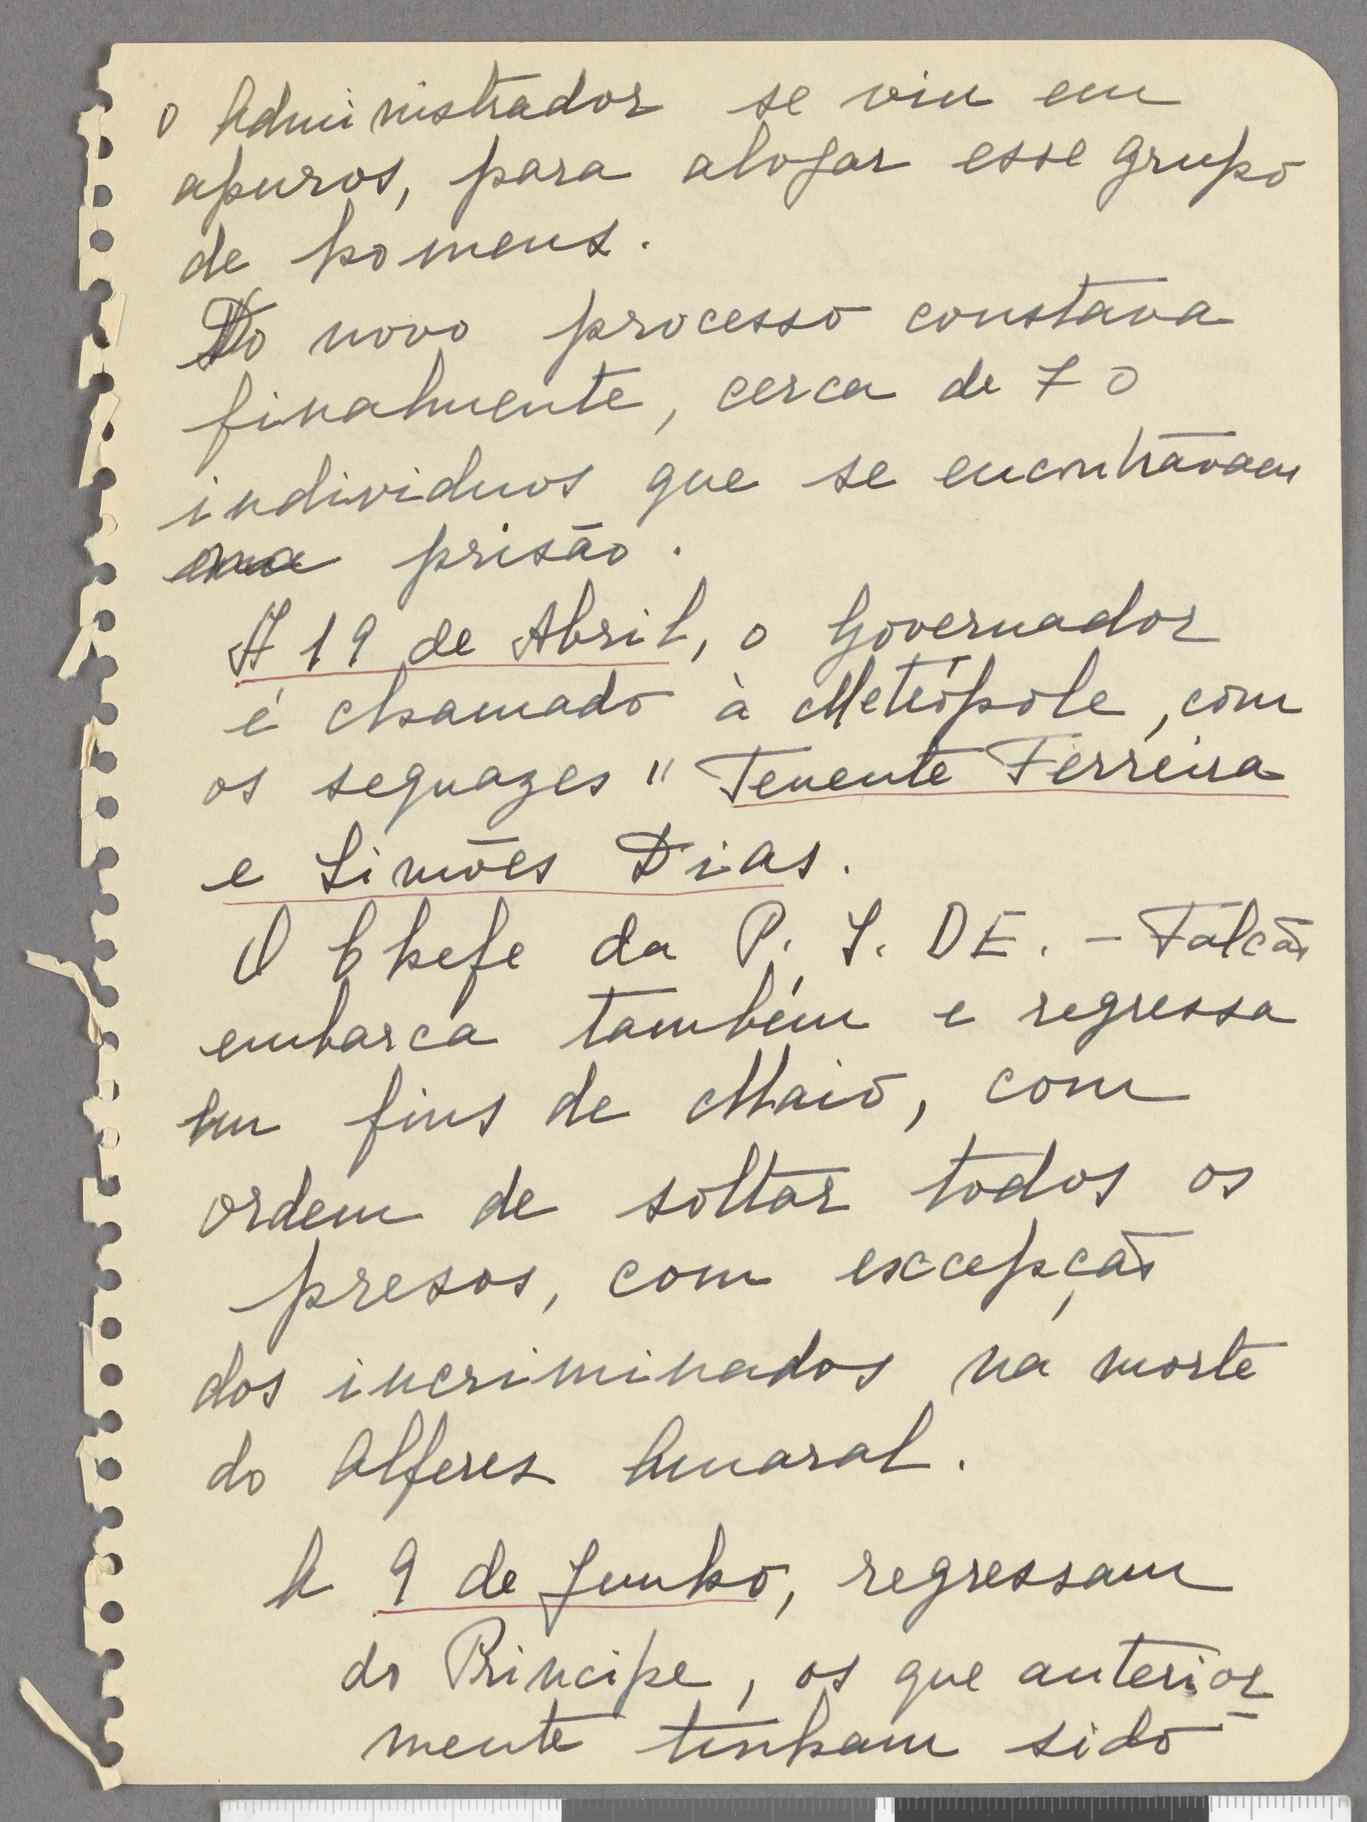 o Administrador se viu em
apuros, para alojar esse grupo
de homens.
Do novo processo constava
finalmente, cerca de 70
individuos que se encontravam
na prisão.
A 19 de Abril, o Governador
é chamado à Metrópole, com
os sequazes "Tenente Ferreira
e Simões Dias.
O Chefe da P. I. DE. - Falcão
embarca também e regressa
em fins de Maio, com
ordem de soltar todos os
presos, com excepção
dos incriminados na morte
do Alferes Amaral.
A 9 de Junho, regressam
do Principe, os que anterior-
mente tinham sido